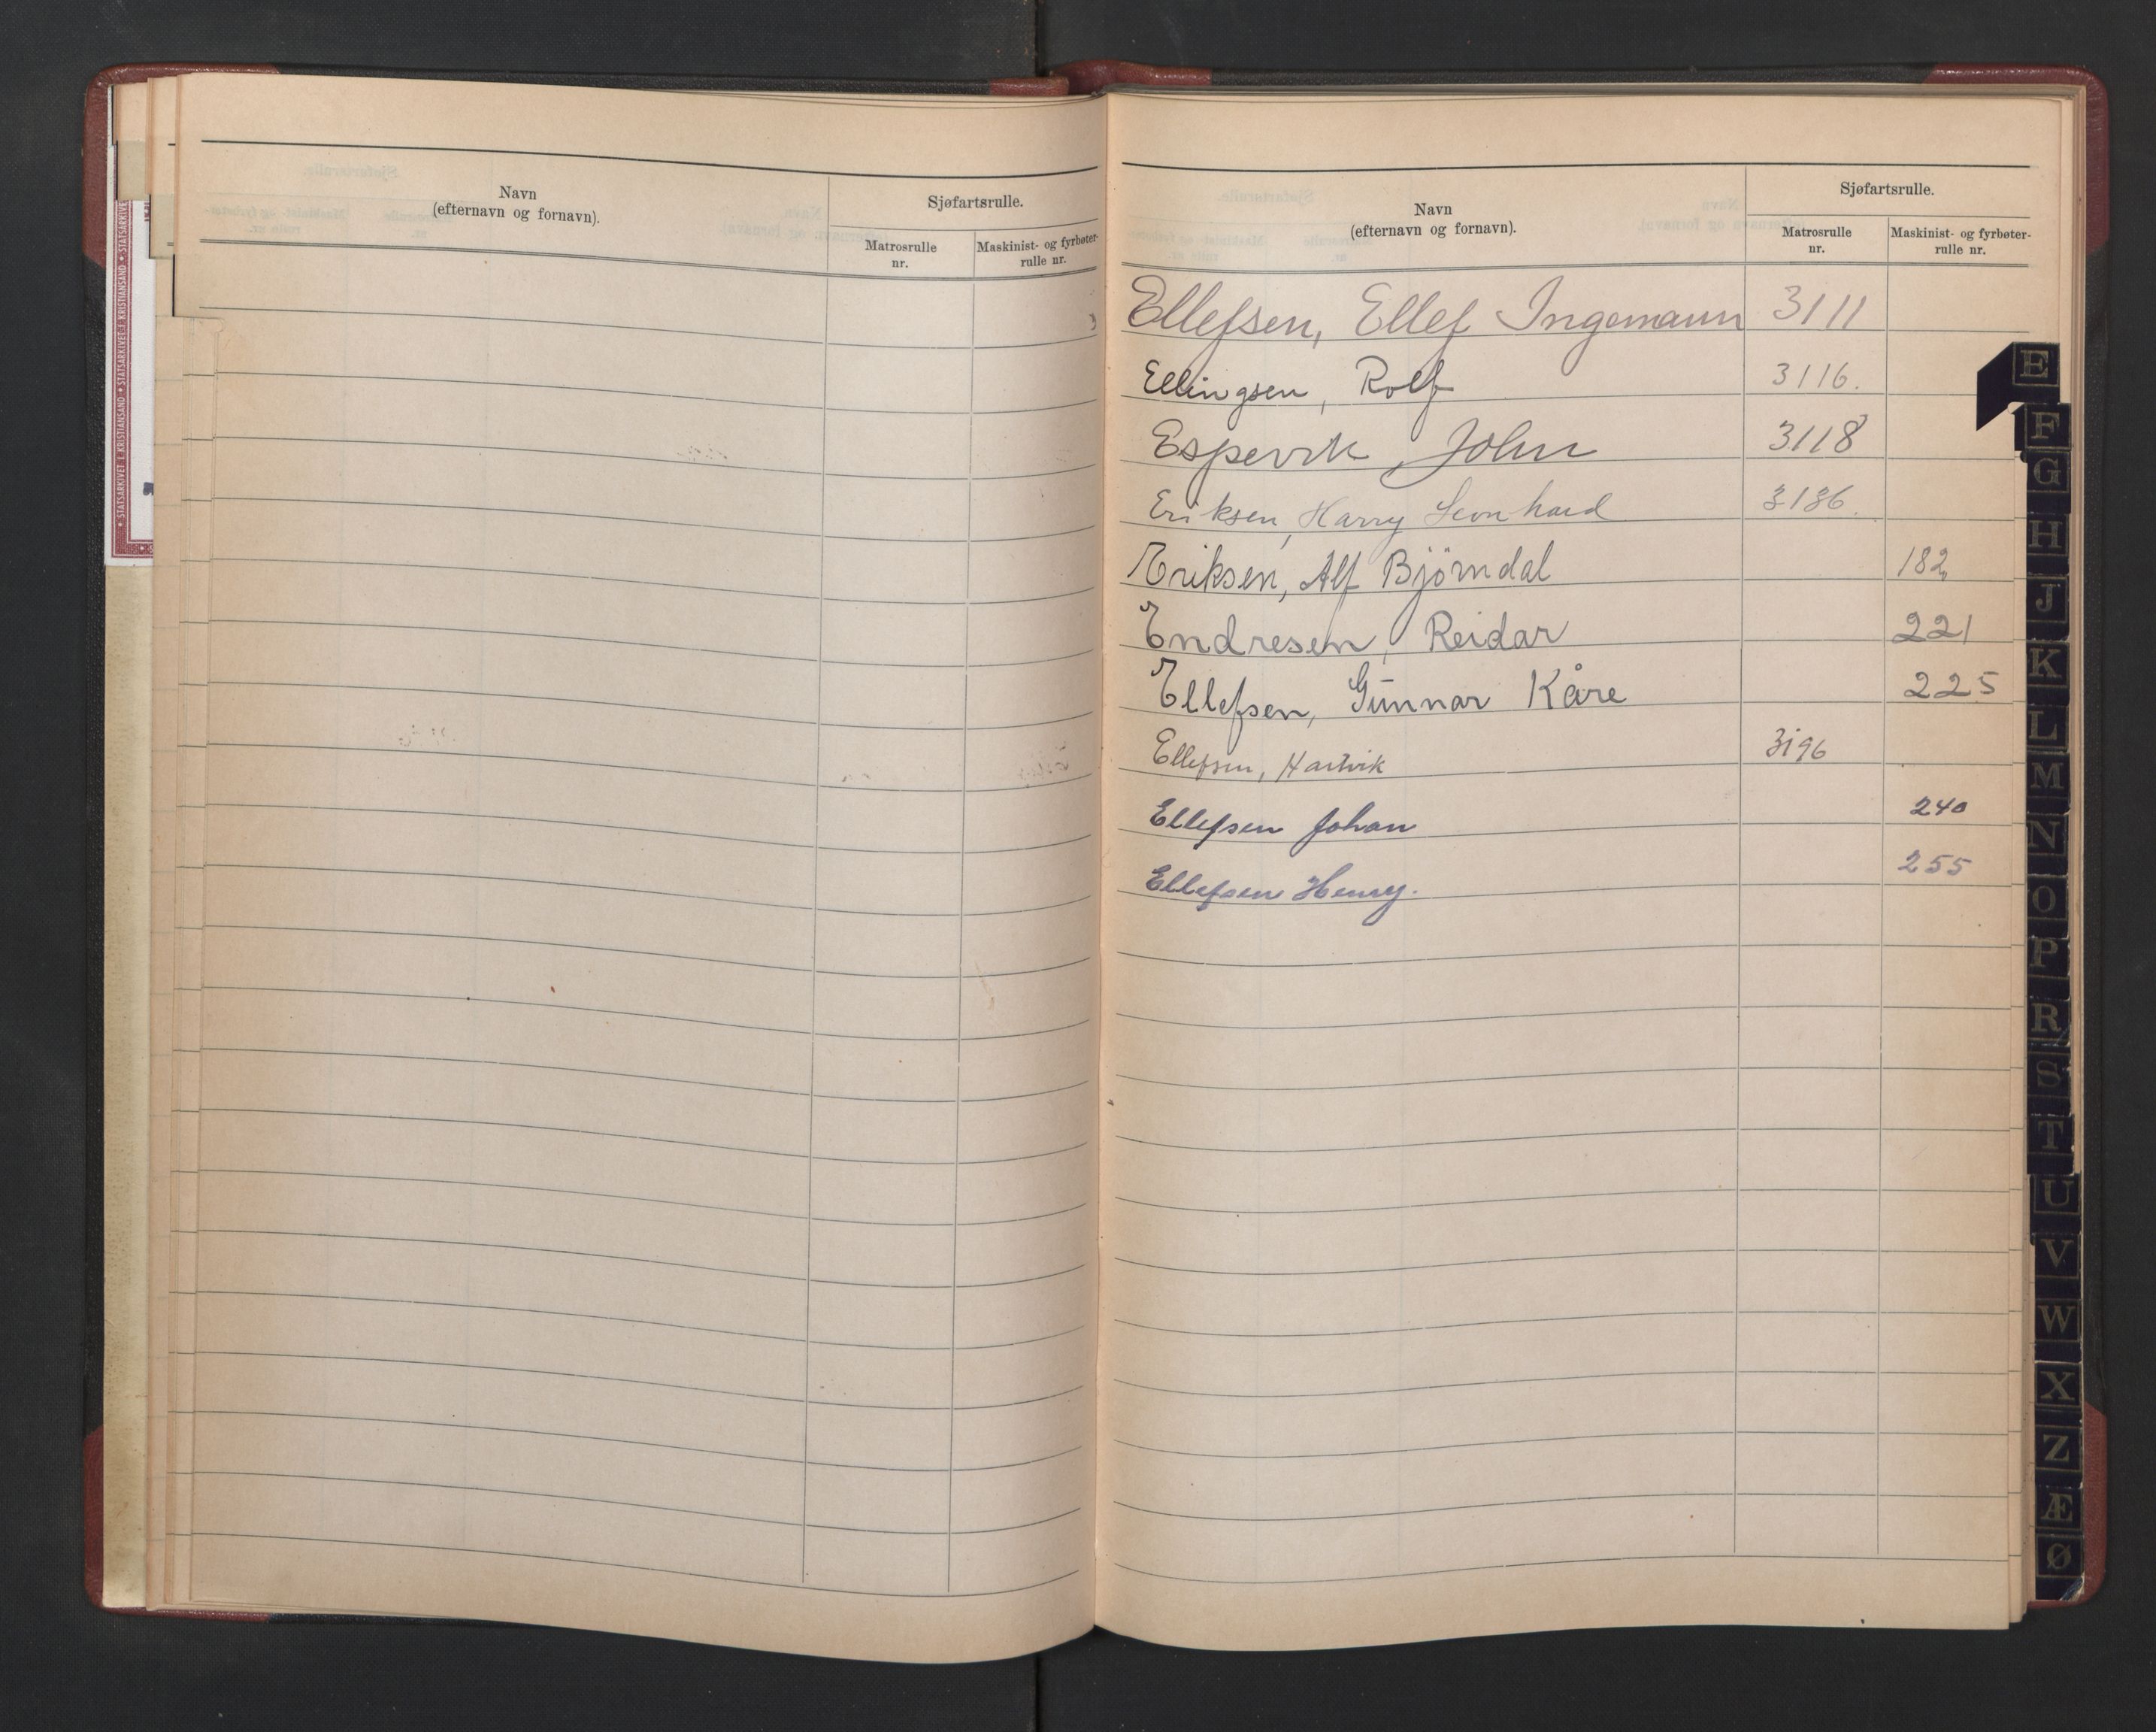 Navn
(efternavn og fornavn).
Sjøfartsrulle.
Matrosrulle
nr.
Maskinist- og fyrbøter-
rulle nr.
Navn
(efternavn og fornavn).
Sjøfartsrulle.
Matrosrulle
nr.
Maskinist- og fyrbøter-
rulle nr.
Ellefsen, Ellef Ingemann 3111
Ellingsen, Rolf 3116.
Espevik, John 3118
Eriksen, Harry Leonhard 3136.
Eriksen, Alf Björndal 182
Endresen, Reidar 221
Ellefsen, Gunnar Kåre 225
Ellefsen, Hartvik 3196
Ellefsen Johan 240
Ellefsen Henry. 255
E
F
G
H
J
K
L
M
N
O
P
R
S
T
U
V
W
X
Z
Æ
Ø
STATSARKIVET I KRISTIANSAND • STATSARKIVET I KRISTIANSAND • STATSARKIVE